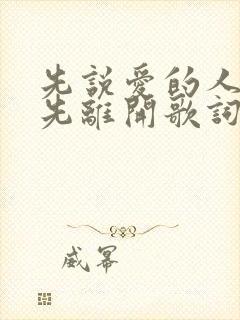 先說愛的人
先離開歌詞
威幂